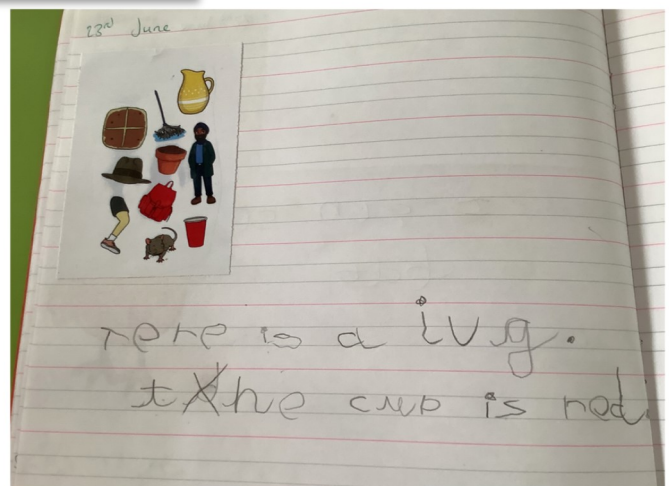 23rd June
Tere is a iug.
the cup is red.